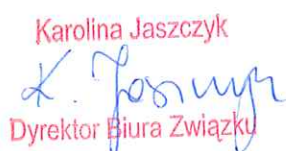 Karolina Jaszczyk
K. Jaszczyk
Dyrektor Biura Związku